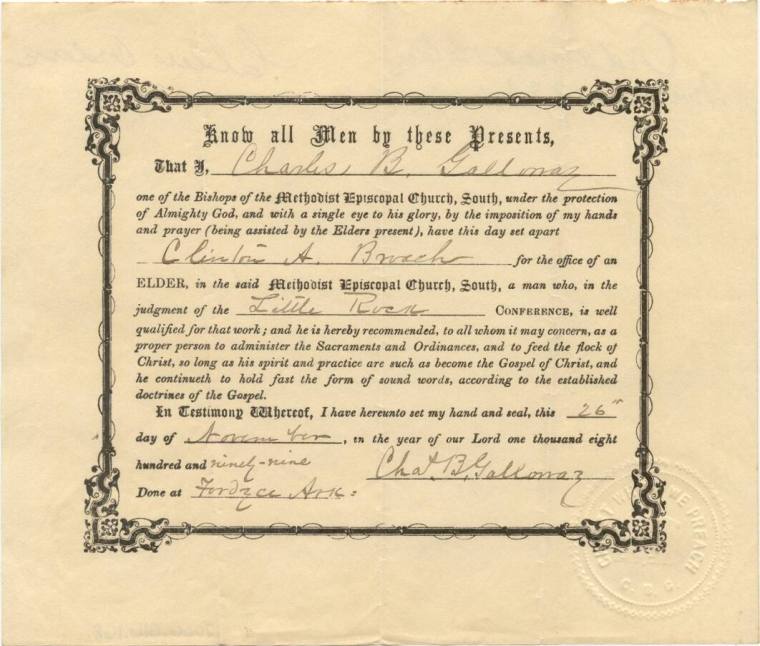 Know all Men by these Presents,
That I, Charles B. Galloway
one of the Bishops of the Methodist Episcopal Church, South, under the protection
of Almighty God, and with a single eye to his glory, by the imposition of my hands
and prayer (being assisted by the Elders present), have this day set apart
Clinton A. Broach for the office of an
ELDER, in the said Methodist Episcopal Church, South, a man who, in the
judgment of the Little Rock CONFERENCE, is well
qualified for that work; and he is hereby recommended, to all whom it may concern, as a
proper person to administer the Sacraments and Ordinances, and to feed the flock of
Christ, so long as his spirit and practice are such as become the Gospel of Christ, and
he continueth to hold fast the form of sound words, according to the established
doctrines of the Gospel.
In Testimony Whereof, I have hereunto set my hand and seal, this 26th
day of November, in the year of our Lord one thousand eight
hundred and ninety-nine Chas. B. Galloway
Done at Fordyce Ark:
WE PREACH
C. B. G.